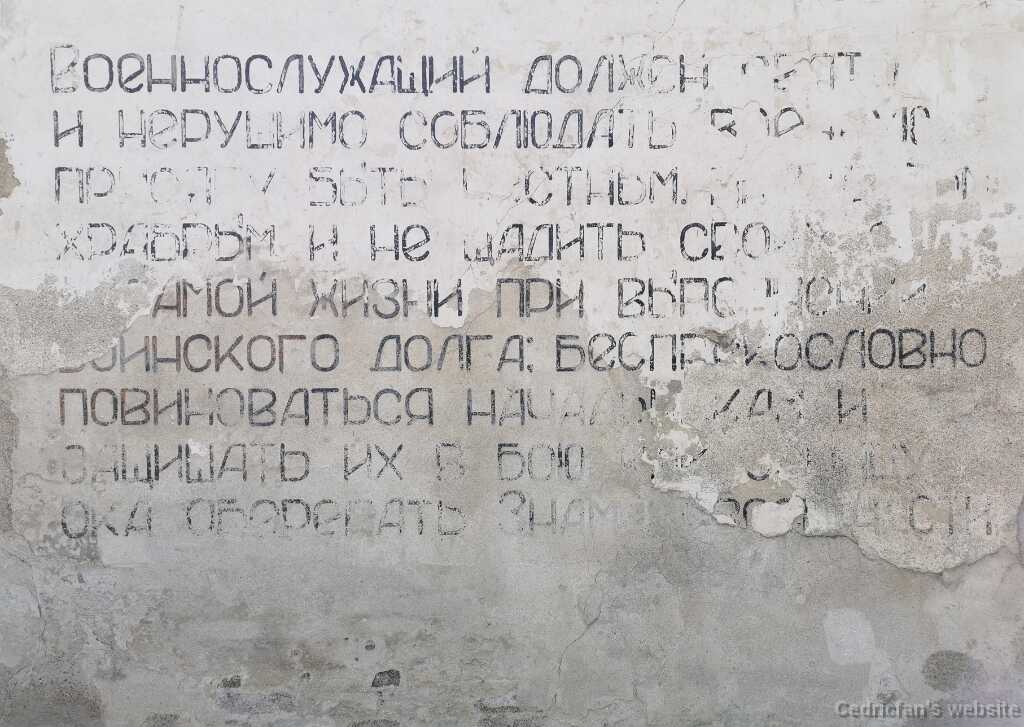 Военнослужащий должен свято
и нерушимо соблюдать военную
присягу, быть честным,
храбрым и не щадить своих
самой жизни при выполнении
воинского долга; беспрекословно
повиноваться начальникам и
защищать их в бою
ока оберегать Знамя части
Cedricfan's website